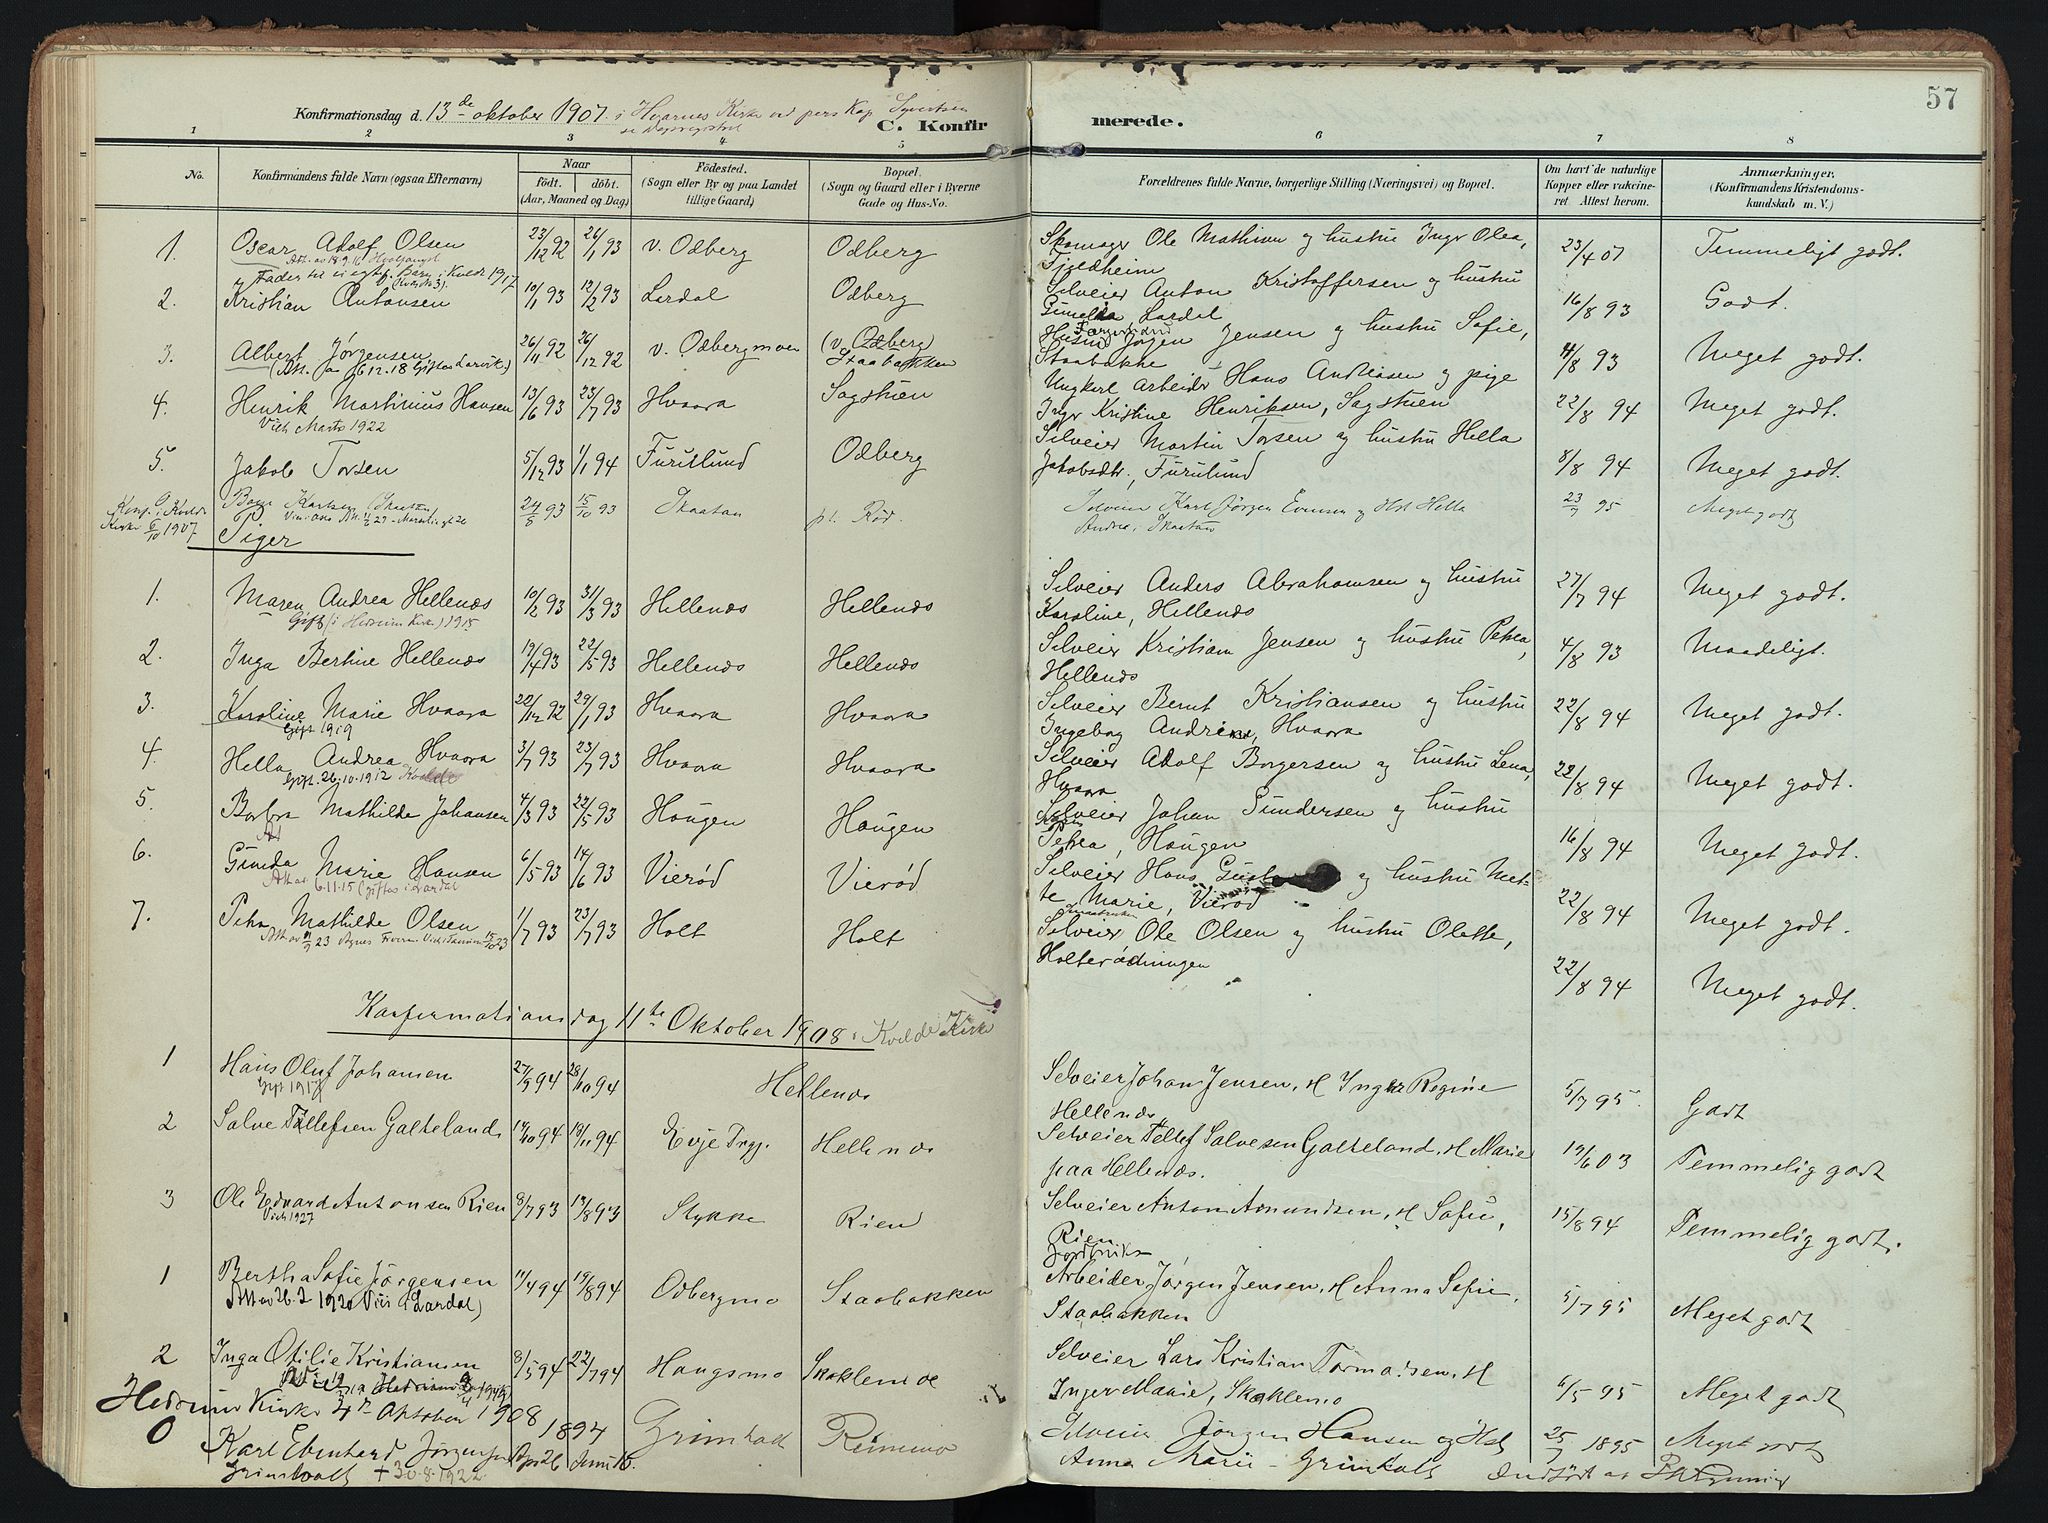 57
Konfirmationsdag d. 13de oktober 1907 i Hvarnes Kirke ved pers Kap Syvertsen
C. Konfirmerede.
1 2 3 4 5 6 7 8
No. Konfirmandens fulde Navn (ogsaa Efternavn) Naar födt. döbt. (Aar, Maaned og Dag) Födested. (Sogn eller By og paa Landet tillige Gaard) Bopæl. (Sogn og Gaard eller i Byerne Gade og Hus-No. Forældrenes fulde Navne, borgerlige Stilling (Næringsvei) og Bopæl. Om havt de naturlige Kopper eller vakcineret. Attest herom. Anmærkninger, (Konfirmandens Kristendomskundskab m. V.)
1. Oscar Adolf Olsen 23/12 92 26/1 93 v. Odberg Odberg Skomager Ole Mathisen og hustru Inger Olea, 23/4 07 Temmeligt godt.
Fjeldheim
2. Kristian Antonsen 10/1 93 12/2 93 Lardal Odberg Selveier Anton Kristoffersen og hustru 16/8 93 Godt.
Lardal
3. Albert Jørgensen 26/11 92 26/12 92 v. Odbergmoen (v. Odberg) Staabakken Jørgen Jensen og hustru Sofie, 4/8 93 Meget godt.
Staabakke
4. Henrik Martinius Hansen 13/6 93 23/7 93 Hvaara Sagstuen Ungkarl Arbeider Hans Andreasen og pige 22/8 94 Meget godt.
Inger Kristine Henriksen, Sagstuen
5. Jakob Torsen 5/12 93 1/1 94 Furulund Odberg Selveier Martin Torsen og hustru Hella 8/8 94 Meget godt.
Jakobsdtr, Furulund
Karlsen Skaatan 24/5 93 15/10 93 Skaatan pt. Rød. Selveier Karl Jørgen Evensen og Hst Hella 23/7 95 Meget godt
Andrea, Skaatan
Piger
1. Maren Andrea Hellenæs 10/2 93 31/3 93 Hellenæs Hellenæs Selveier Anders Abrahamsen og hustru 27/7 94 Meget godt.
Gift (i Hedrum Kirke) 1915 Karoline, Hellenæs
2. Inga Bertine Hellenæs 19/4 93 22/5 93 Hellenæs Hellenæs Selveier Kristian Jensen og hustru Petrea, 4/8 93 Maadeligt.
Hellenæs
3. Karoline Marie Hvaara 22/12 92 29/1 93 Hvaara Hvaara Selveier Bernt Kristiansen og hustru 22/8 94 Meget godt.
Gift 1919 Ingebog Andrine, Hvaara
4. Hella Andrea Hvaara 3/7 93 23/7 93 Hvaara Hvaara Selveier Adolf Borgersen og hustru Lena, 22/8 94 Meget godt.
Gift. 26-10-1912 Kvelde Hvaara
5. Barbra Mathilde Johansen 4/3 93 22/5 93 Haugen Haugen Selveier Johan Gundersen og hustru 16/8 94 Meget godt.
Petrea, Haugen
6. Gunda Marie Hansen 6/5 93 14/6 93 Vierød Vierød Selveier Hans og hustru Met- 22/8 94 Meget godt.
Att av 6.11.15 (giftes i Lardal te Marie, Vierød
7. Petra Mathilde Olsen 1/7 93 23/7 93 Holt Holt Selveier Ole Olsen og hustru Olette, 22/8 94 Meget godt.
Holterødningen
Konfirmationsdag 11te Oktober 1908 i Kvelde Kirke
1 Hans Oluf Johansen 27/9 94 28/10 94 Hellenæs Selveier Johan Jensen, H Inger Regine 5/7 95 Godt
Gift 1917 Hellenæs
2 Salve Tellefsen Galteland 14/10 94 18/11 94 Evje Hellenæs Selveier Tellef Salvesen Galteland, H Marie 19/6 03 Temmelig godt
paa Hellenæs.
3 Ole Edvard Antonsen Rien 8/7 93 13/8 93 Stykke Rien Selveier Anton Amundsen, H Sofie, 15/8 94 Temmelig godt.
Viet 1927 Rien
1 Bertha Sofie Jørgensen 11/4 94 19/8 94 Odbergmo Staabakken Arbeider Jørgen Jensen, H Anna Sofie, 5/7 95 Meget godt
Att av 26.2 1920 Vies (Lardal) Staabakken
2 Inga Otilie Kristiansen 8/5 94 22/7 94 Haugsmo Skoklemoe Selveier Lars Kristian H 6/5 95 Meget godt
Inger Marie, Skoklemo
Hedrum Kirke 4de Oktober 1908
0 Karl Jørgensen 1894 Grimholt Selveier Jørgen Hansen og Hst 25/7 1895 Meget godt
Grimholt + 30.8.1922 Anna Marie - Grimholt Indført av